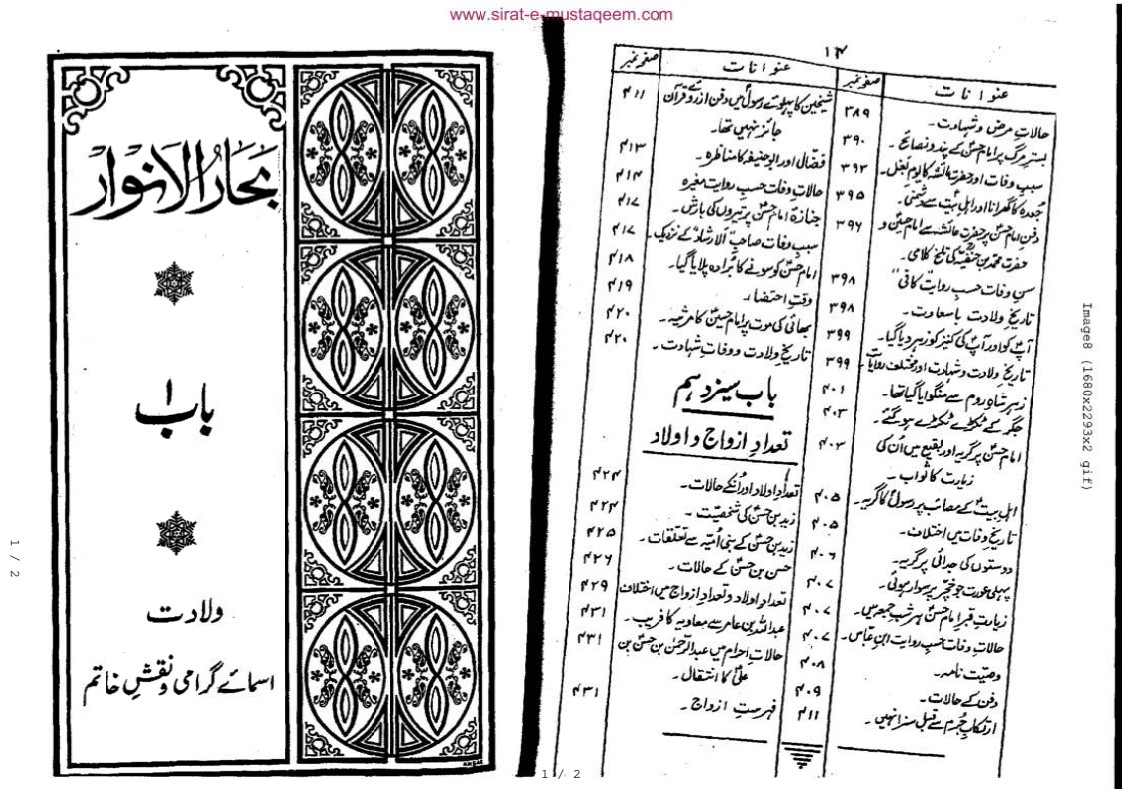 www.sirat-e-mustaqeem.com
۱۴
عنوانات
صفحہ نمبر
حالاتِ مرض و شہادت۔ ۳۸۹
بسترِ مرگ پر امام حسنؑ کے پند و نصائح۔ ۳۹۰
سببِ وفات اور حضرت عائشہ کا یومِ بغل۔ ۳۹۲
جُعدہ کا گھرانا اور اہلِ بیتؑ سے دشمنی۔ ۳۹۵
دفنِ امام حسنؑ پر حضرت عائشہ سے امام حسینؑ و ۳۹۶
حضرت محمد بن حنفیہؓ کی تلخ کلامی۔
سنِ وفات حسبِ روایت کافی ۳۹۸
تاریخِ ولادت باسعادت۔ ۳۹۸
آپؑ کو اور آپؑ کی کنیز کو زہر دیا گیا۔ ۳۹۹
تاریخِ ولادت و شہادت اور مختلف روایات ۳۹۹
زہر شاہِ روم سے منگوایا گیا تھا۔ ۴۰۱
جگر کے ٹکڑے ٹکڑے ہو گئے۔ ۴۰۳
امام حسنؑ پر گریہ اور بقیع میں اُن کی ۴۰۳
زیارت کا ثواب۔
اہلِ بیتؑ کے مصائب پر رسولؐ کا گریہ۔ ۴۰۵
تاریخِ وفات میں اختلاف۔ ۴۰۵
دوستوں کی جدائی پر گریہ۔ ۴۰۶
پہلی عورت جو خچّر پر سوار ہوئی۔ ۴۰۷
زیارتِ قبرِ امام حسنؑ ہر شبِ جمعہ میں۔ ۴۰۷
حالاتِ وفات حسبِ روایت ابنِ عباس۔ ۴۰۷
وصیّت نامہ۔ ۴۰۸
دفن کے حالات۔ ۴۰۹
ارتکابِ جُرم سے قبل سزا نہیں۔ ۴۱۱
عنوانات
صفحہ نمبر
شیخین کا پہلوئے رسولؐ میں دفن از روئے قرآن ۴۱۱
جائز نہیں تھا۔
فضّال اور ابو حنیفہ کا مناظرہ۔ ۴۱۳
حالاتِ وفات حسبِ روایت مغیرہ ۴۱۴
جنازۂ امام حسنؑ پر تیروں کی بارش۔ ۴۱۷
سببِ وفات صاحبِ الارشاد کے نزدیک۔ ۴۱۷
امام حسنؑ کو سونے کا بُرادہ پلایا گیا۔ ۴۱۸
وقتِ احتضار ۴۱۹
بھائی کی موت پر امام حسینؑ کا مرثیہ۔ ۴۲۰
تاریخِ ولادت و وفات شہادت۔ ۴۲۰
باب سیزدہم
تعدادِ ازواج و اولاد
تعدادِ اولاد اور اُنکے حالات۔ ۴۲۴
زید بن حسنؑ کی شخصیّت۔ ۴۲۴
زید بن حسنؑ کے بنی اُمیّہ سے تعلّقات۔ ۴۲۵
حسن بن حسنؑ کے حالات۔ ۴۲۶
تعدادِ اولاد و تعدادِ ازواج میں اختلاف ۴۲۹
عبداللہ بن عامر سے معاویہ کا فریب۔ ۴۳۱
حالاتِ احرام میں عبدالرحمٰن بن حسنؑ بن ۴۳۱
علیؑ کا انتقال۔
فہرستِ ازواج۔ ۴۳۱
بحار الانوار
باب ۱
ولادت
اسمائے گرامی و نقشِ خاتم
1 / 2
1 / 2
Image8 (1680x2293x2 gif)